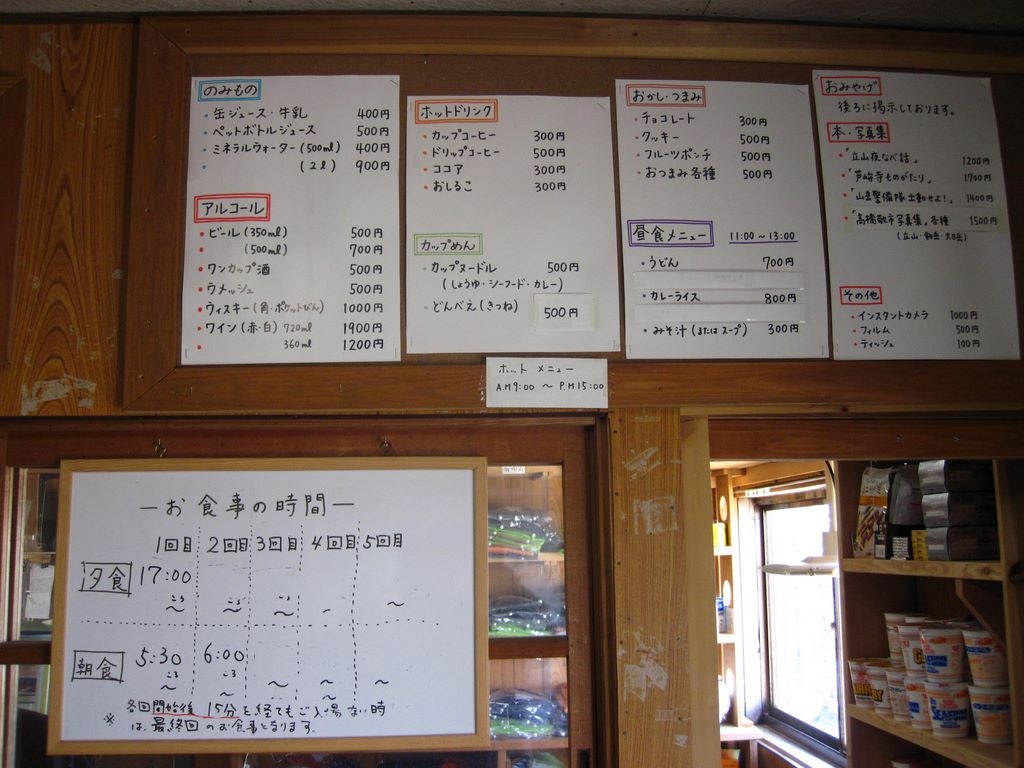 のみもの
・缶ジュース・牛乳 400円
・ペットボトルジュース 500円
・ミネラルウォーター(500ml) 400円
・ (2ℓ) 900円
アルコール
・ビール(350ml) 500円
・ (500ml) 700円
・ワンカップ酒 500円
・ウメッシュ 500円
・ウィスキー(角・ポケットびん) 1000円
・ワイン(赤・白) 720ml 1900円
・ 360ml 1200円
ホットドリンク
・カップコーヒー 300円
・ドリップコーヒー 500円
・ココア 300円
・おしるこ 300円
カップめん
・カップヌードル 500円
(しょうゆ・シーフード・カレー)
・どんべえ(きつね) 500円
おかし・つまみ
・チョコレート 300円
・クッキー 500円
・フルーツポンチ 500円
・おつまみ各種 500円
昼食メニュー 11:00~13:00
・うどん 700円
・カレーライス 800円
・みそ汁(またはスープ) 300円
おみやげ
後ろに掲示しております。
本・写真集
・「立山夜なべ話」 1200円
・「芦峅寺ものがたり」 1700円
・「山岳警備隊出動せよ!」 1400円
・「高橋敬市写真集」各種 1500円
(立山・剱岳・大日岳)
その他
・インスタントカメラ 1000円
・フィルム 500円
・ティッシュ 100円
ホット メニュー
A.M9:00 ~ P.M15:00
ーお食事の時間ー
1回目 2回目 3回目 4回目 5回目
夕食 17:00
ころ ころ ころ
~ ~ ~ ~ ~
朝食 5:30 6:00
ころ ころ
~ ~ ~ ~ ~
※ 各回開始後 15分を経てもご入場ない時
は、最終回のお食事となります。
CURRY
SEAFOOD